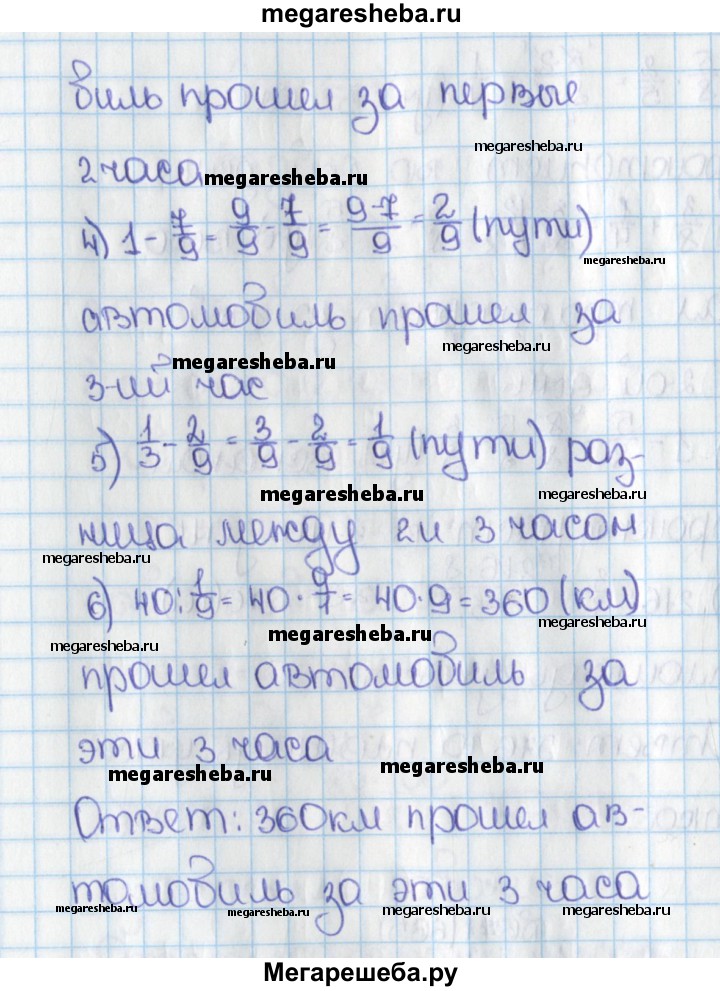 megaresheba.ru
виль прошел за первые
megaresheba.ru
2 часа megaresheba.ru
4) 1 - 7/9 = 9/9 - 7/9 = 9-7/9 = 2/9 (пути)
megaresheba.ru
автомобиль прошел за
megaresheba.ru
megaresheba.ru
3-ий час
5) 1/3 - 2/9 = 3/9 - 2/9 = 1/9 (пути) раз-
megaresheba.ru megaresheba.ru
ница между 2 и 3 часом
megaresheba.ru
6) 40 : 1/9 = 40 · 9/1 = 40 · 9 = 360 (км)
megaresheba.ru
megaresheba.ru
megaresheba.ru
прошел автомобиль за
эти 3 часа
megaresheba.ru megaresheba.ru
Ответ: 360 км прошел ав-
томобиль за эти 3 часа
megaresheba.ru megaresheba.ru megaresheba.ru megaresheba.ru
Мегарешеба.ру